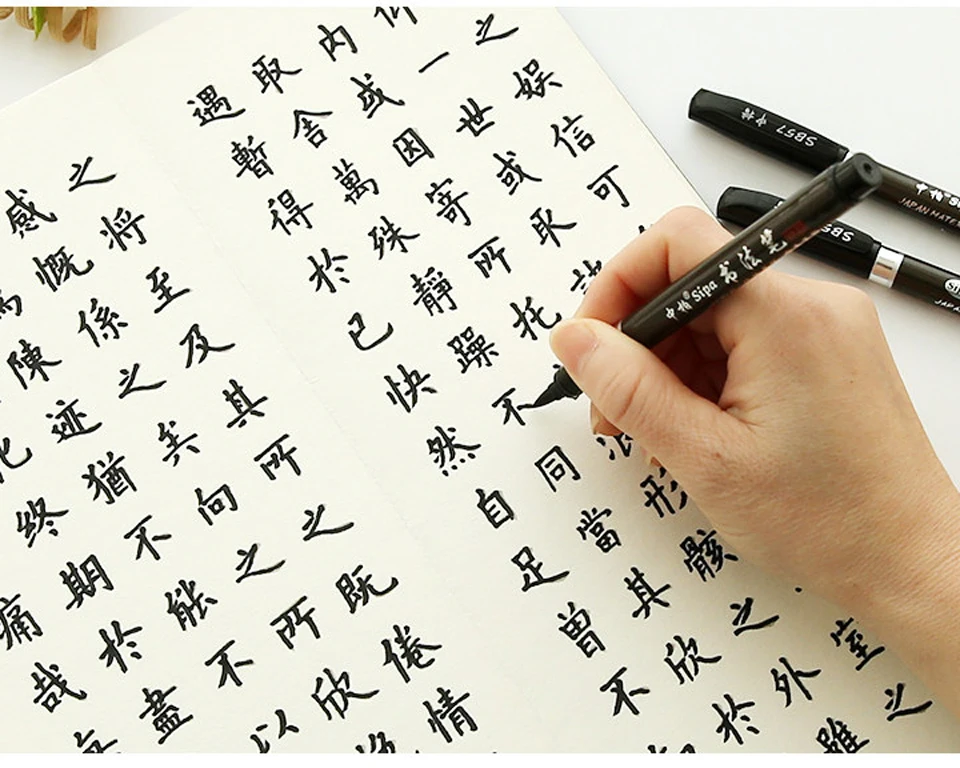 之娯信可
仰一世或取諸室之
内或因寄所托浪形骸之外雖
取舍萬殊靜躁不同當其欣於
遇暫得於已快然自足曽不
之将至及其所之既倦情
感慨係之矣向之所欣
陳迹猶不能不以
化終期於盡
痛哉
中柏 Sipa 书法笔
SB57 中柏
SB57
JAPAN MATE